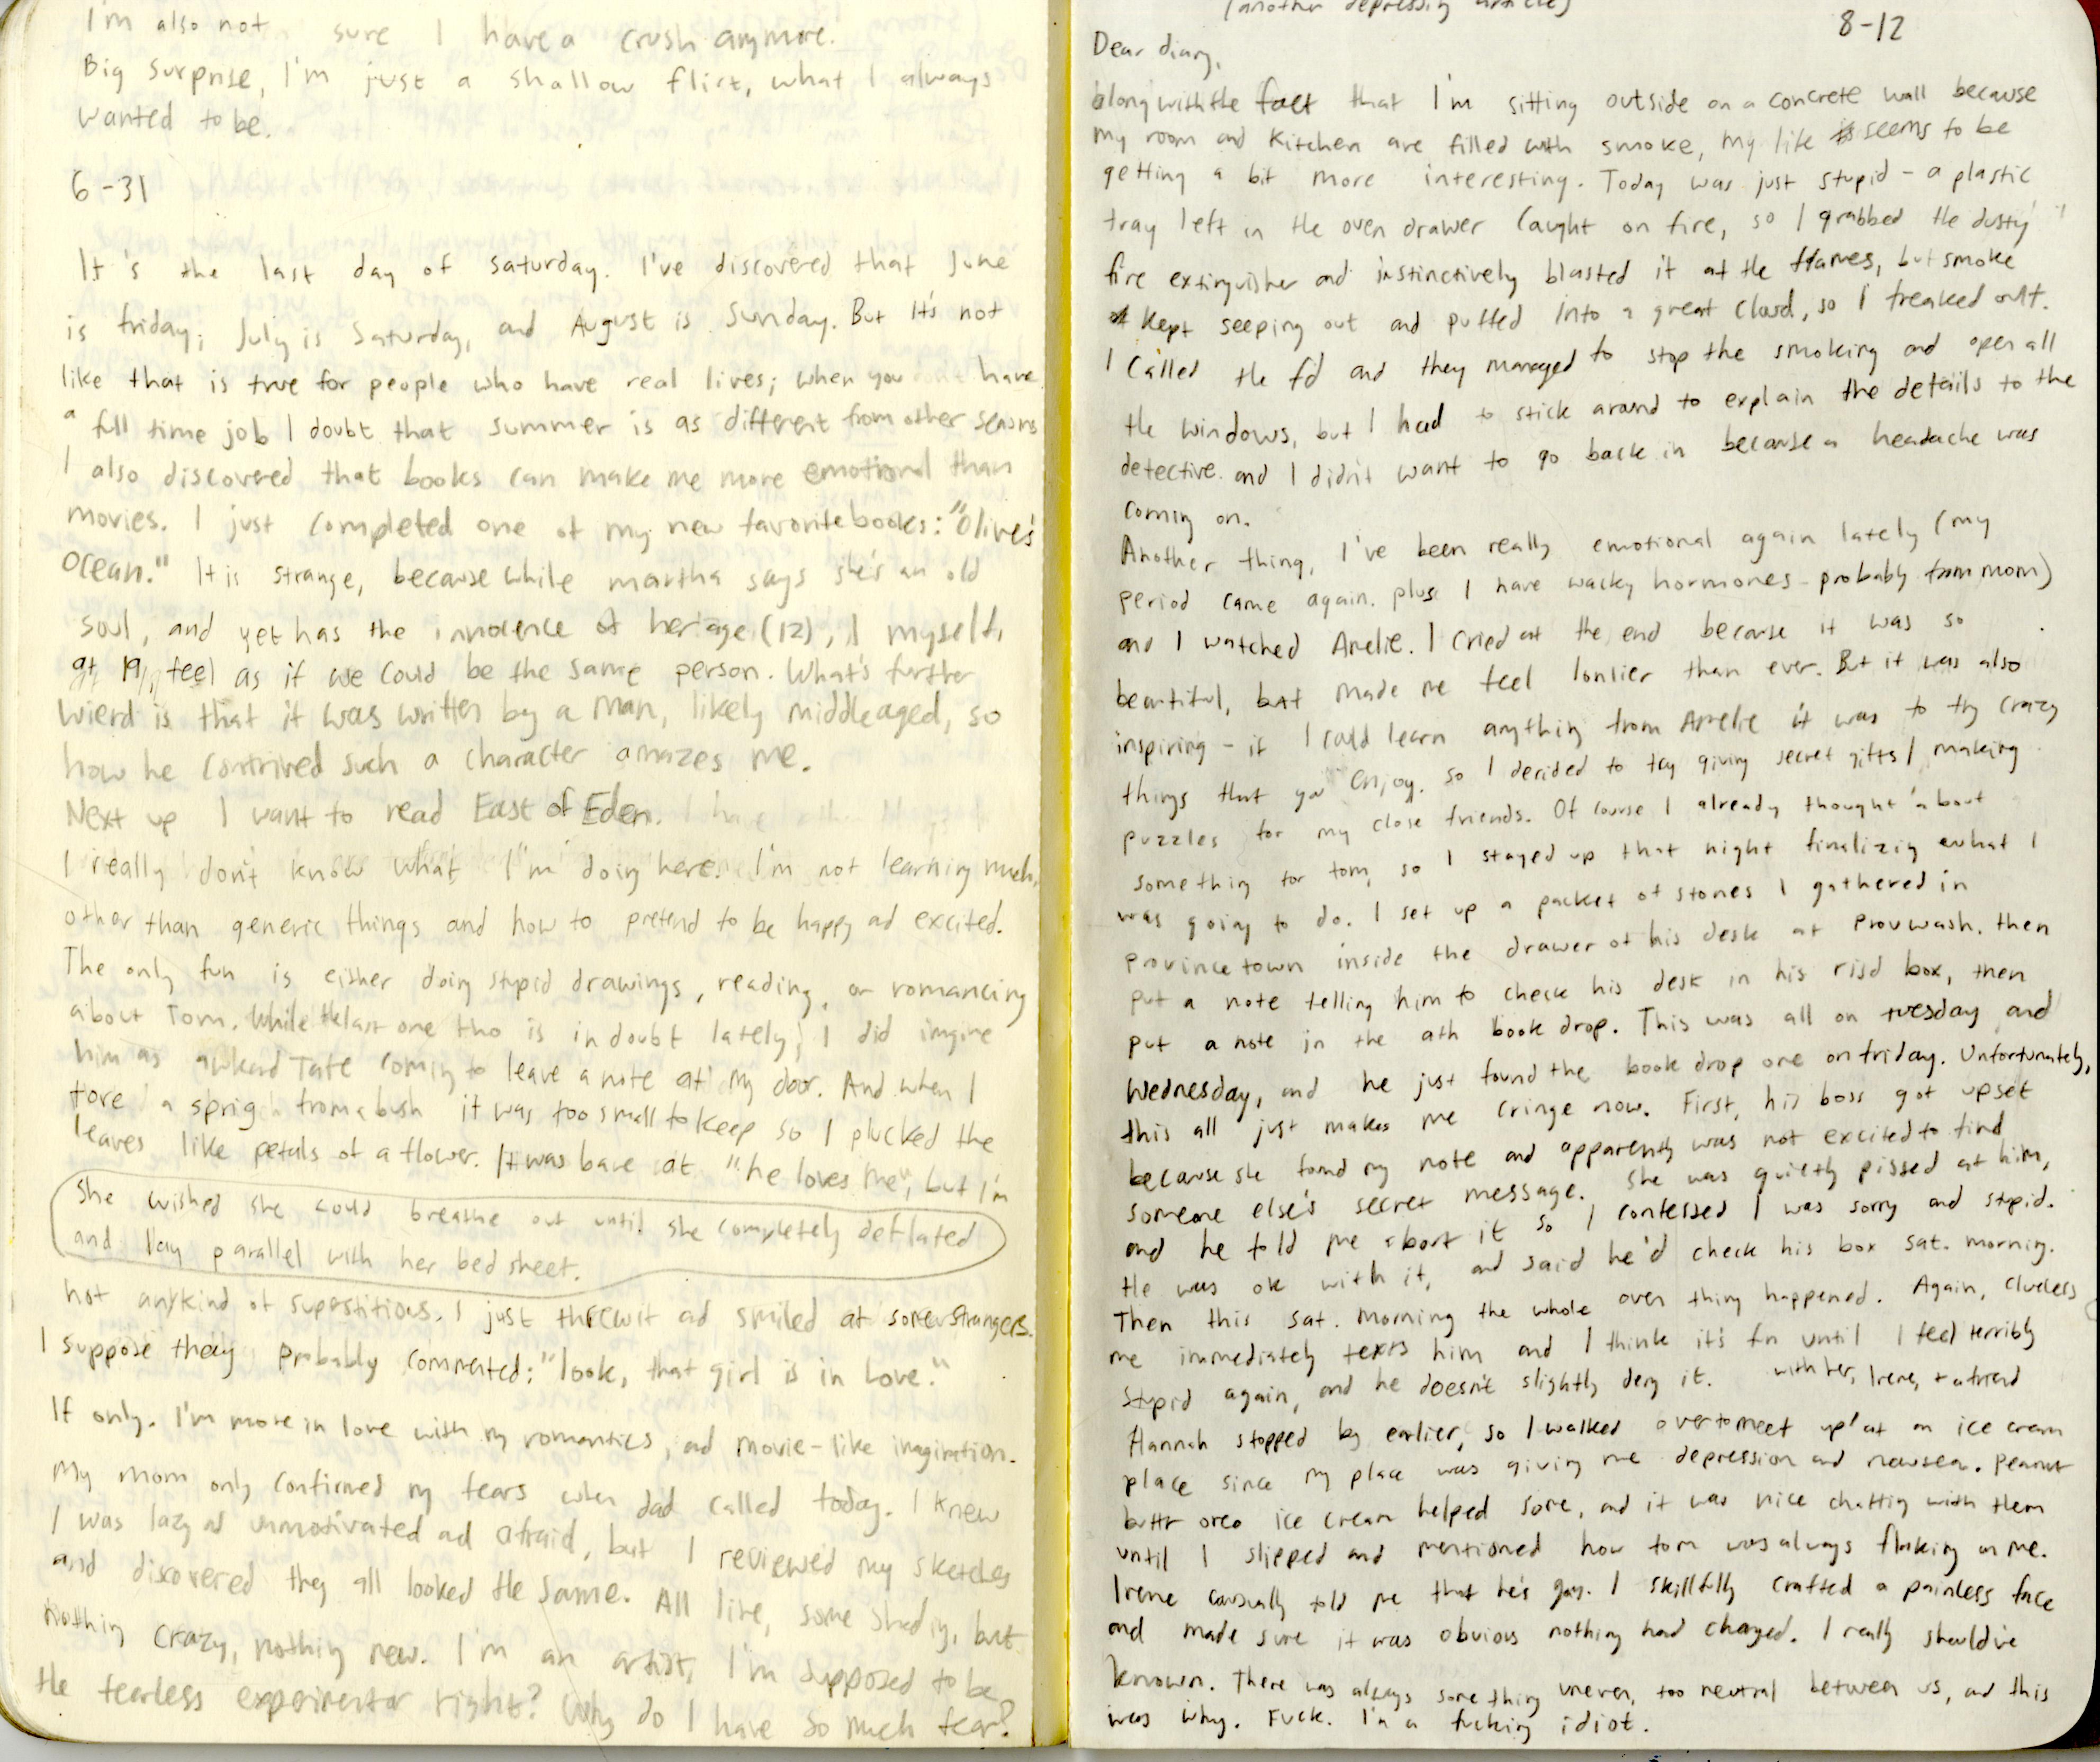 I'm also not sure I have a crush anymore.
Big surprise, I'm just a shallow flirt, what I always
wanted to be.
6-31
It's the last day of saturday. I've discovered that June
is friday; July is Saturday, and August is Sunday. But it's not
like that is true for people who have real lives; when you don't have
a full time job I doubt that summer is as different from other seasons
I also discovered that books can make me more emotional than
movies. I just completed one of my new favorite books: "Olive's
Ocean." It is strange, because while martha says she's an old
soul, and yet has the innocence of her age (12), I myself,
at 19, feel as if we could be the same person. What's further
wierd is that it was written by a man, likely middleaged, so
how he contrived such a character amazes me.
Next up I want to read East of Eden.
I really don't know what I'm doing here. I'm not learning much,
other than generic things and how to pretend to be happy ad excited.
The only fun is eisher doing stupid drawings, reading, or romancing
about Tom. While the last one tho is in doubt lately; I did imgine
him as awkard Tate coming to leave a note at my door. And when I
tore a sprig from a bush it was too small to keep so I plucked the
leaves like petals of a flower. It was bare at "he loves me", but I'm
She wished she could breathe out until she completely deflated
and lay parallel with her bed sheet.
not anykind of superstitious. I just threw it ad smiled at some strangers.
I suppose they probably commented: "look, that girl is in love."
If only. I'm more in love with my romantics, ad movie-like imagination.
My mom only confirmed my fears when dad called today. I knew
I was lazy ad unmotivated ad afraid, but I reviewed my sketches
and discovered they all looked the same. All line, some shading, but
nothing crazy, nothing new. I'm an artist, I'm supposed to be
the fearless experimentor right? Why do I have so much fear?
(another depressing article)
8-12
Dear diary,
along with the fact that I'm sitting outside on a concrete wall because
my room and kitchen are filled with smoke, my life seems to be
getting a bit more interesting. Today was just stupid - a plastic
tray left in the oven drawer caught on fire, so I grabbed the dusty
fire extinguisher and instinctively blasted it at the flames, but smoke
kept seeping out and puffed into a great cloud, so I freaked out.
I called the fd and they managed to stop the smoking and open all
the windows, but I had to stick around to explain the details to the
detective. and I didn't want to go back in because a headache was
coming on.
Another thing, I've been really emotional again lately (my
period came again. plus I have wacky hormones - probably from mom)
and I watched Amelie. I cried at the end because it was so
beautiful, but made me feel lonlier than ever. But it was also
inspiring - if I could learn anything from Amelie it was to try crazy
things that you enjoy. so I decided to try giving secret gifts / making
puzzles for my close friends. Of course I already thought about
something for tom, so I stayed up that night finalizing what I
was going to do. I set up a packet of stones I gathered in
provincetown inside the drawer of his desk at provwash. then
put a note telling him to check his desk in his risd box, then
put a note in the ath book drop. This was all on tuesday and
Wednesday, and he just found the book drop one on friday. Unfortunately,
this all just makes me cringe now. First, his boss got upset
because she found my note and apparently was not excited to find
someone else's secret message. She was quietly pissed at him,
and he told me about it so I confessed I was sorry and stupid.
He was ok with it, and said he'd check his box sat. morning.
Then this sat. morning the whole oven thing happened. Again, clueless
me immediately texts him and I think it's fn until I feel terribly
stupid again, and he doesn't slightly deny it. with her, Irene, + a friend
Hannah stopped by earlier, so I walked over to meet up at an ice cream
place since my place was giving me depression and nawsea. Peanut
buttr oreo ice cream helped some, and it was nice chatting with them
until I slipped and mentioned how tom was always flaking on me.
Irene casually told me that he's gay. I skillfully crafted a painless face
and made sure it was obvious nothing had changed. I really should've
known. There was always something uneven, too neutral between us, and this
was why. Fuck. I'm a fucking idiot.